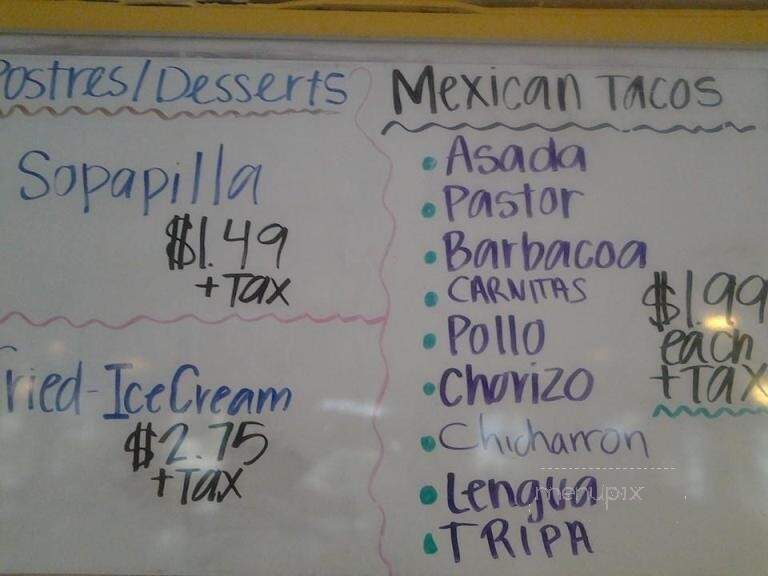 Postres/Desserts
Sopapilla
$1.49
+Tax
Fried-Ice Cream
$2.75
+Tax
Mexican Tacos
• Asada
• Pastor
• Barbacoa
• CARNITAS
• Pollo
• Chorizo
• Chicharron
• Lengua
• TRIPA
$1.99
each
+Tax
menupix